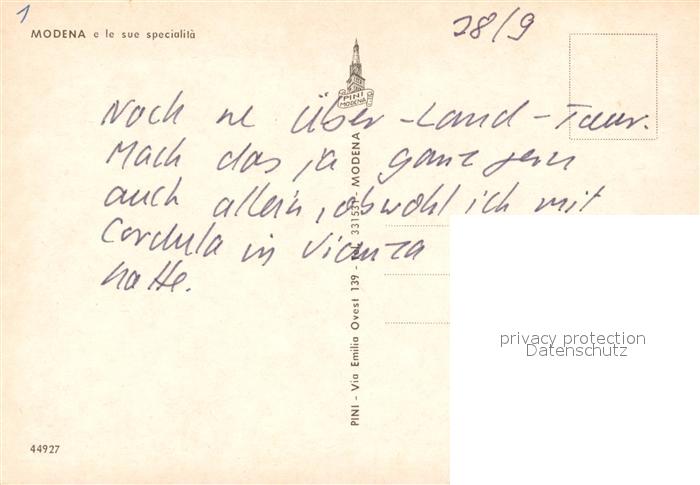 1
MODENA e le sue specialità
28/9
PINI
MODENA
Noch ne Über-Land-Tour.
Mach das ja ganz gern
auch allein, obwohl ich mit
Cordula in Vicenza
hatte.
PINI - Via Emilia Ovest 139 - Tel. 331531 - MODENA
privacy protection
Datenschutz
44927